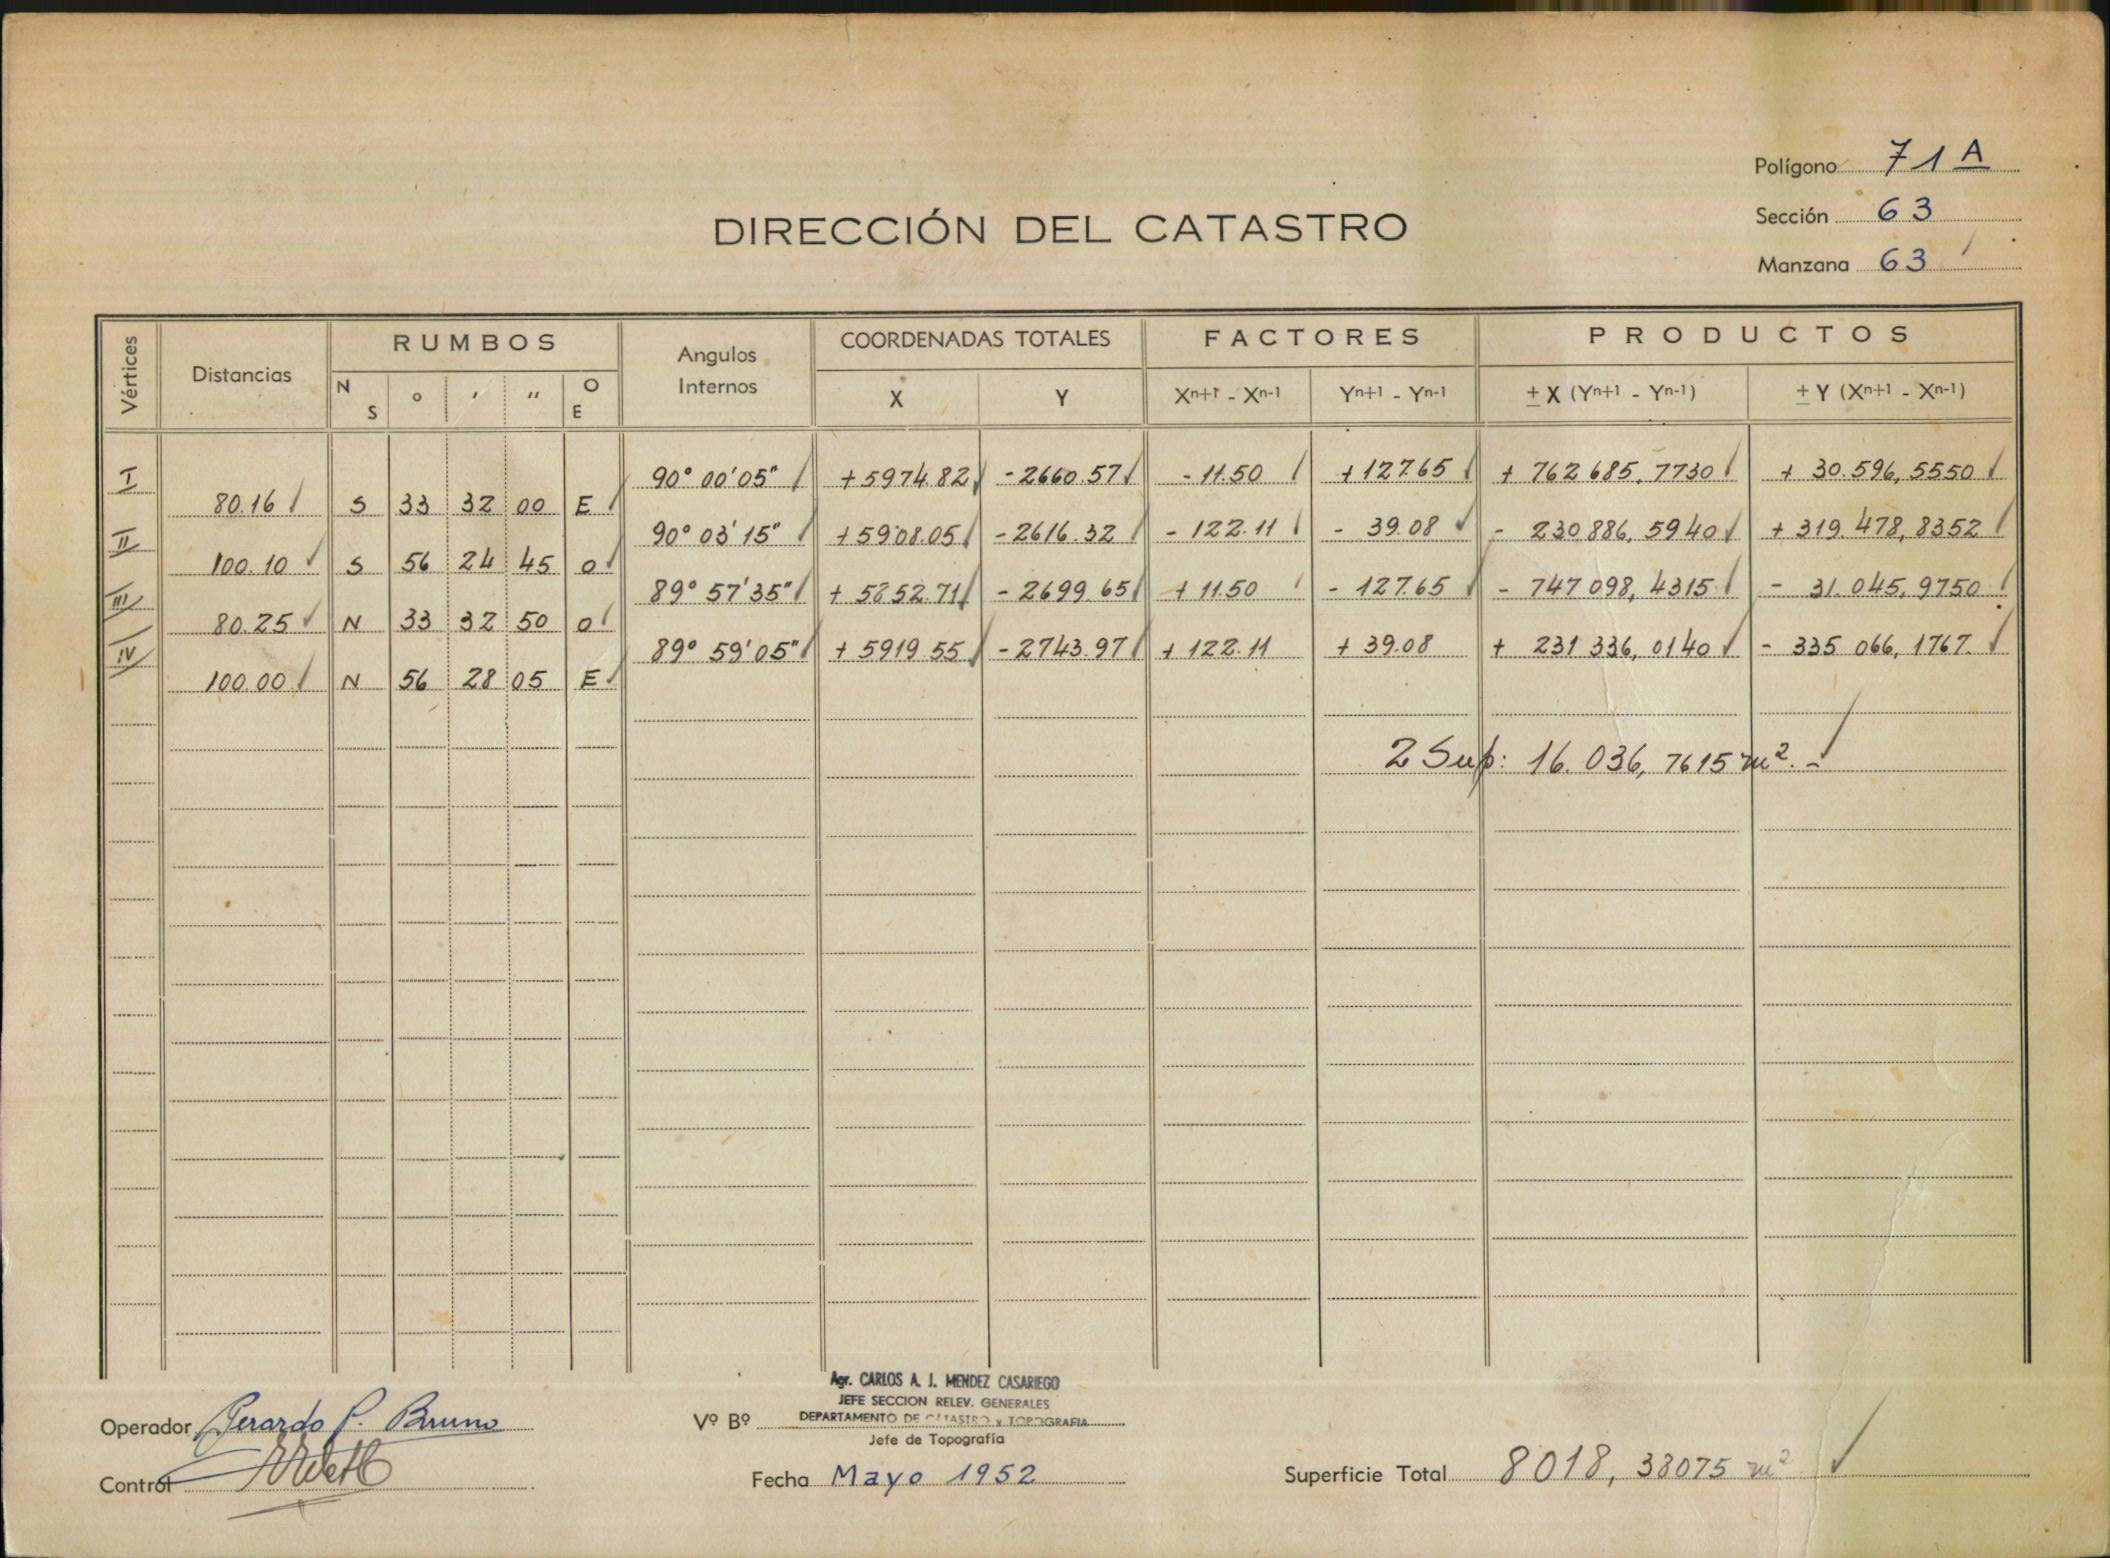 Polígono 71 A
Sección 63
Manzana 63
DIRECCIÓN DEL CATASTRO
Vértices Distancias RUMBOS Angulos Internos COORDENADAS TOTALES FACTORES PRODUCTOS
N S ° ′ ″ O E X Y Xn+1 - Xn-1 Yn+1 - Yn-1 ± X (Yn+1 - Yn-1) ± Y (Xn+1 - Xn-1)
I 90° 00' 05" +5974.82 -2660.57 -11.50 +127.65 +762 685,7730 +30.596,5550
80.16 S 33 32 00 E
II 90° 03' 15" +5908.05 -2616.32 -122.11 -39.08 -230 886,5940 +319.478,8352
100.10 S 56 24 45 O
III 89° 57' 35" +5852.71 -2699.65 +11.50 -127.65 -747 098,4315 -31.045,9750
80.25 N 33 32 50 O
IV 89° 59' 05" +5919.55 -2743.97 +122.11 +39.08 +231 336,0140 -335 066,1767
100.00 N 56 28 05 E
2 Sup: 16.036,7615 m². -
Agr. CARLOS A. J. MENDEZ CASARIEGO
JEFE SECCION RELEV. GENERALES
DEPARTAMENTO DE CATASTRO y TOPOGRAFIA
Operador Gerardo P. Bruno Vº Bº
Jefe de Topografía
Control
Fecha Mayo 1952
Superficie Total 8018,38075 m²